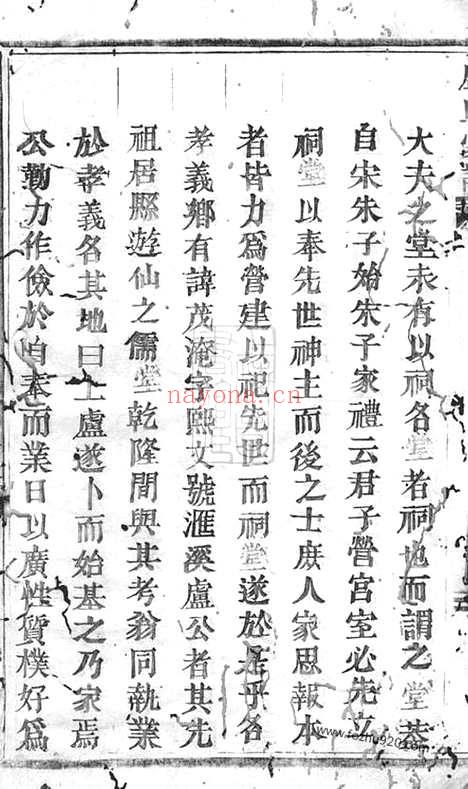 大夫之堂未有以祠名堂者祠也而謂之堂蓋
自宋朱子始朱子家禮云君子營宮室必先立
祠堂以奉先世神主而後之士庶人家思報本
者皆力為營建以祀先世而祠堂遂於是乎各
孝義鄉有諱茂淹字熙文號滙溪盧公者其先
祖居縣遊仙之儒堂乾隆間與其考翁同執業
於孝義名其地曰上盧遂卜而始基之乃家焉
公勤力作儉於自奉而業日以廣性質樸好為
nayona.cn
www.fozhu920.com